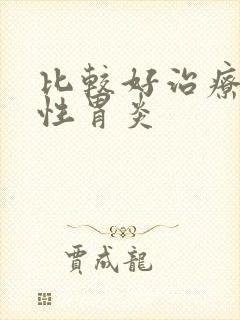 比較好治療
性胃炎
賈成龍